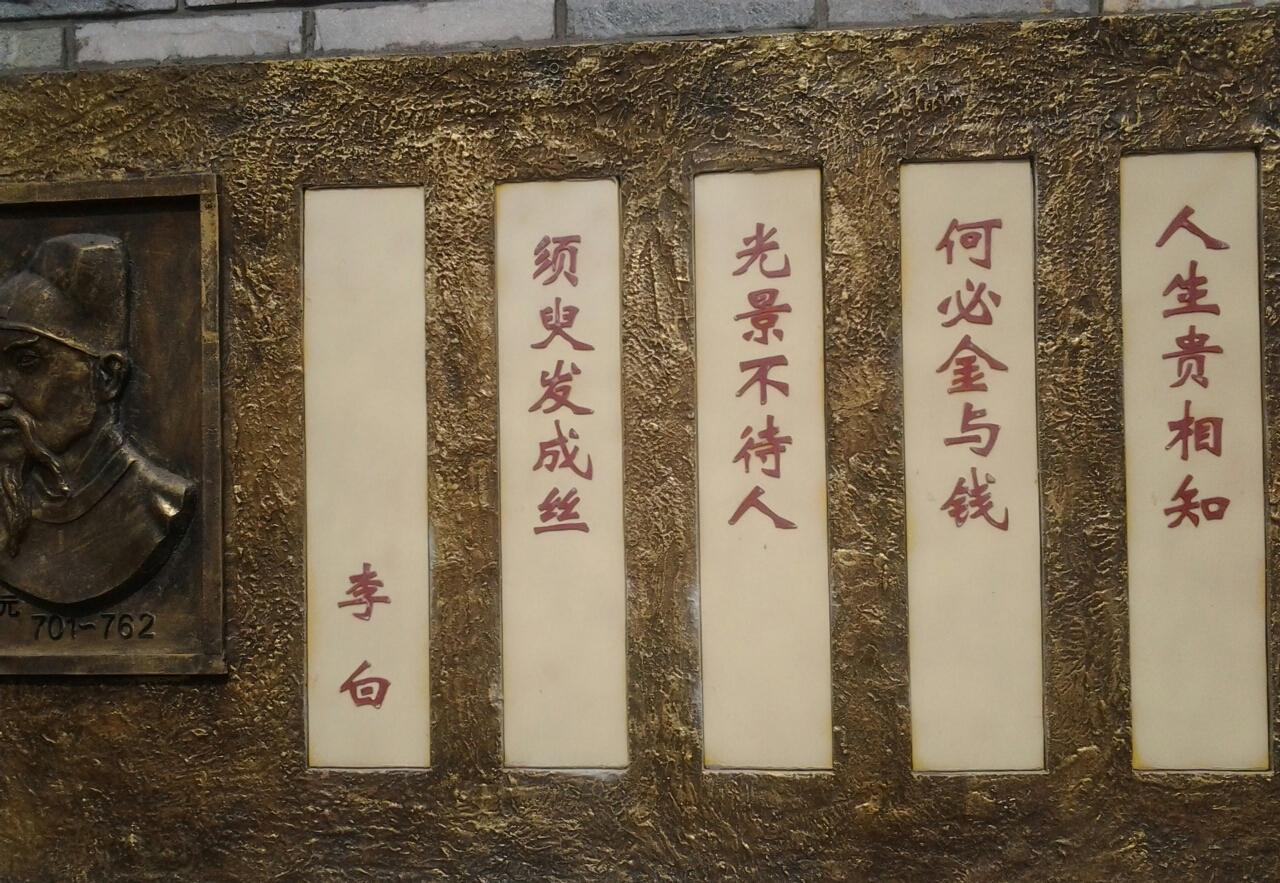 人生贵相知
何必金与钱
光景不待人
须臾发成丝
李白
元
701-762